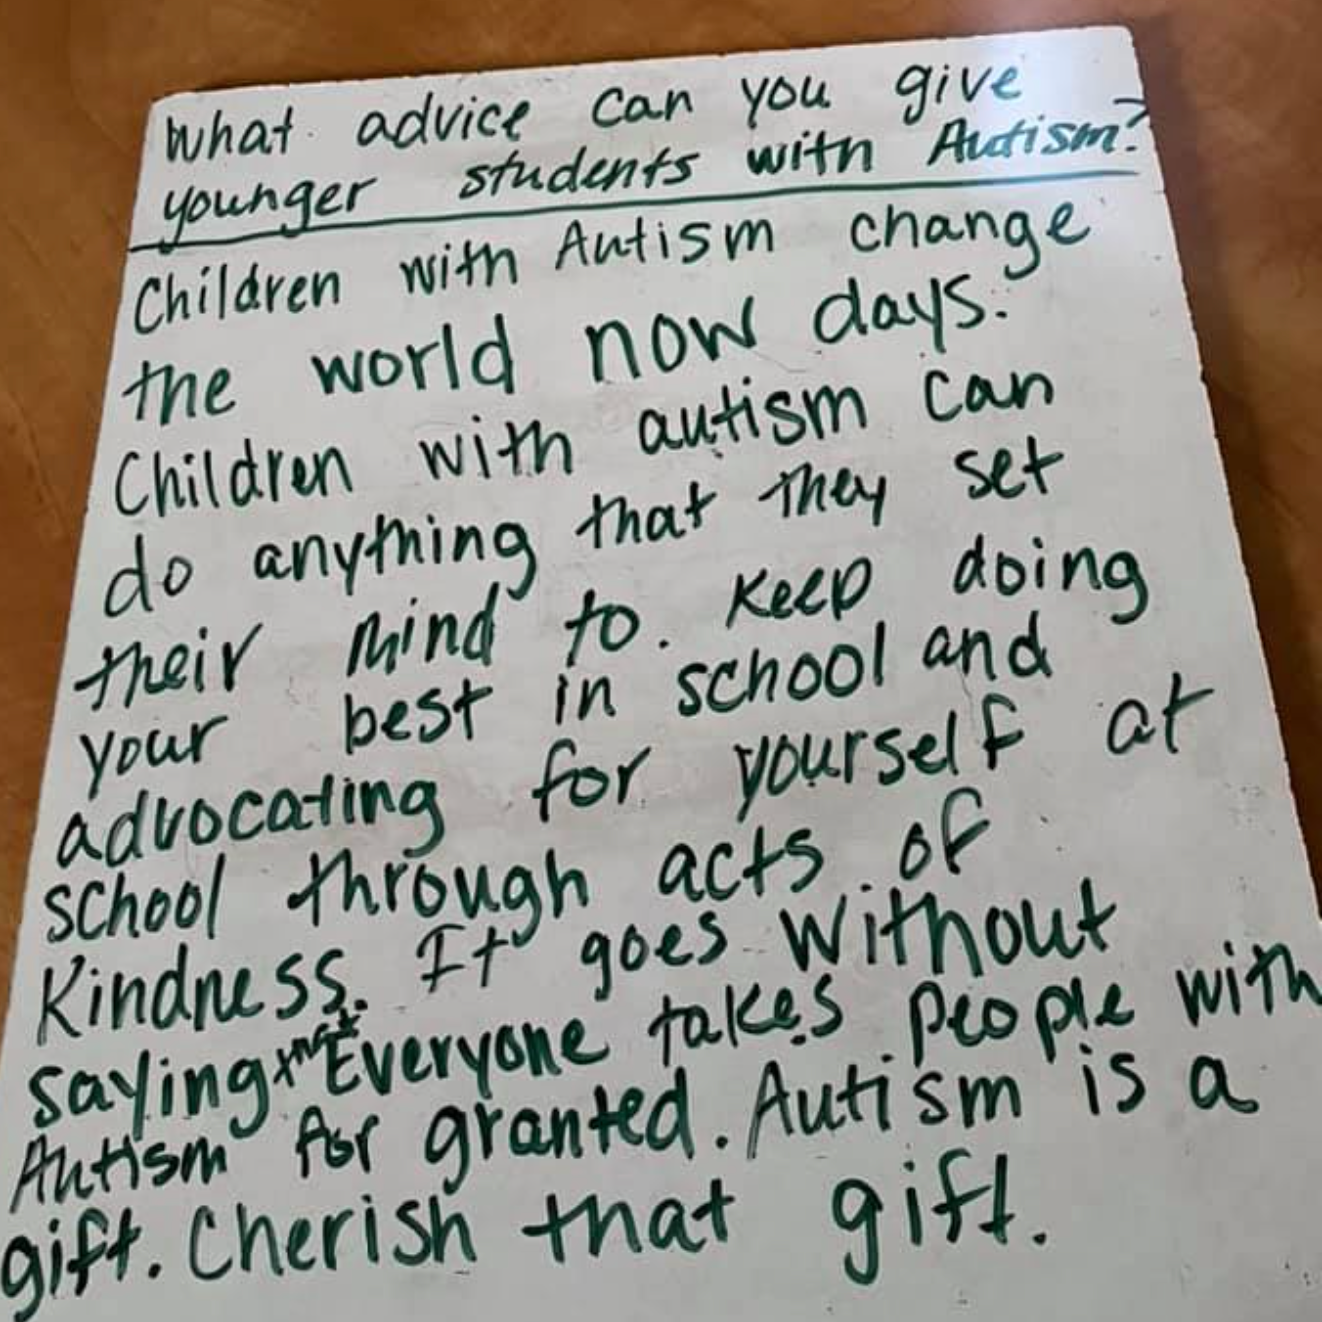 What advice can you give
younger students with Autism?
Children with Autism change
the world now days.
Children with autism can
do anything that they set
their mind to. Keep doing
your best in school and
advocating for yourself at
school through acts of
Kindness. It goes without
saying Everyone takes people with
Autism for granted. Autism is a
gift. Cherish that gift.